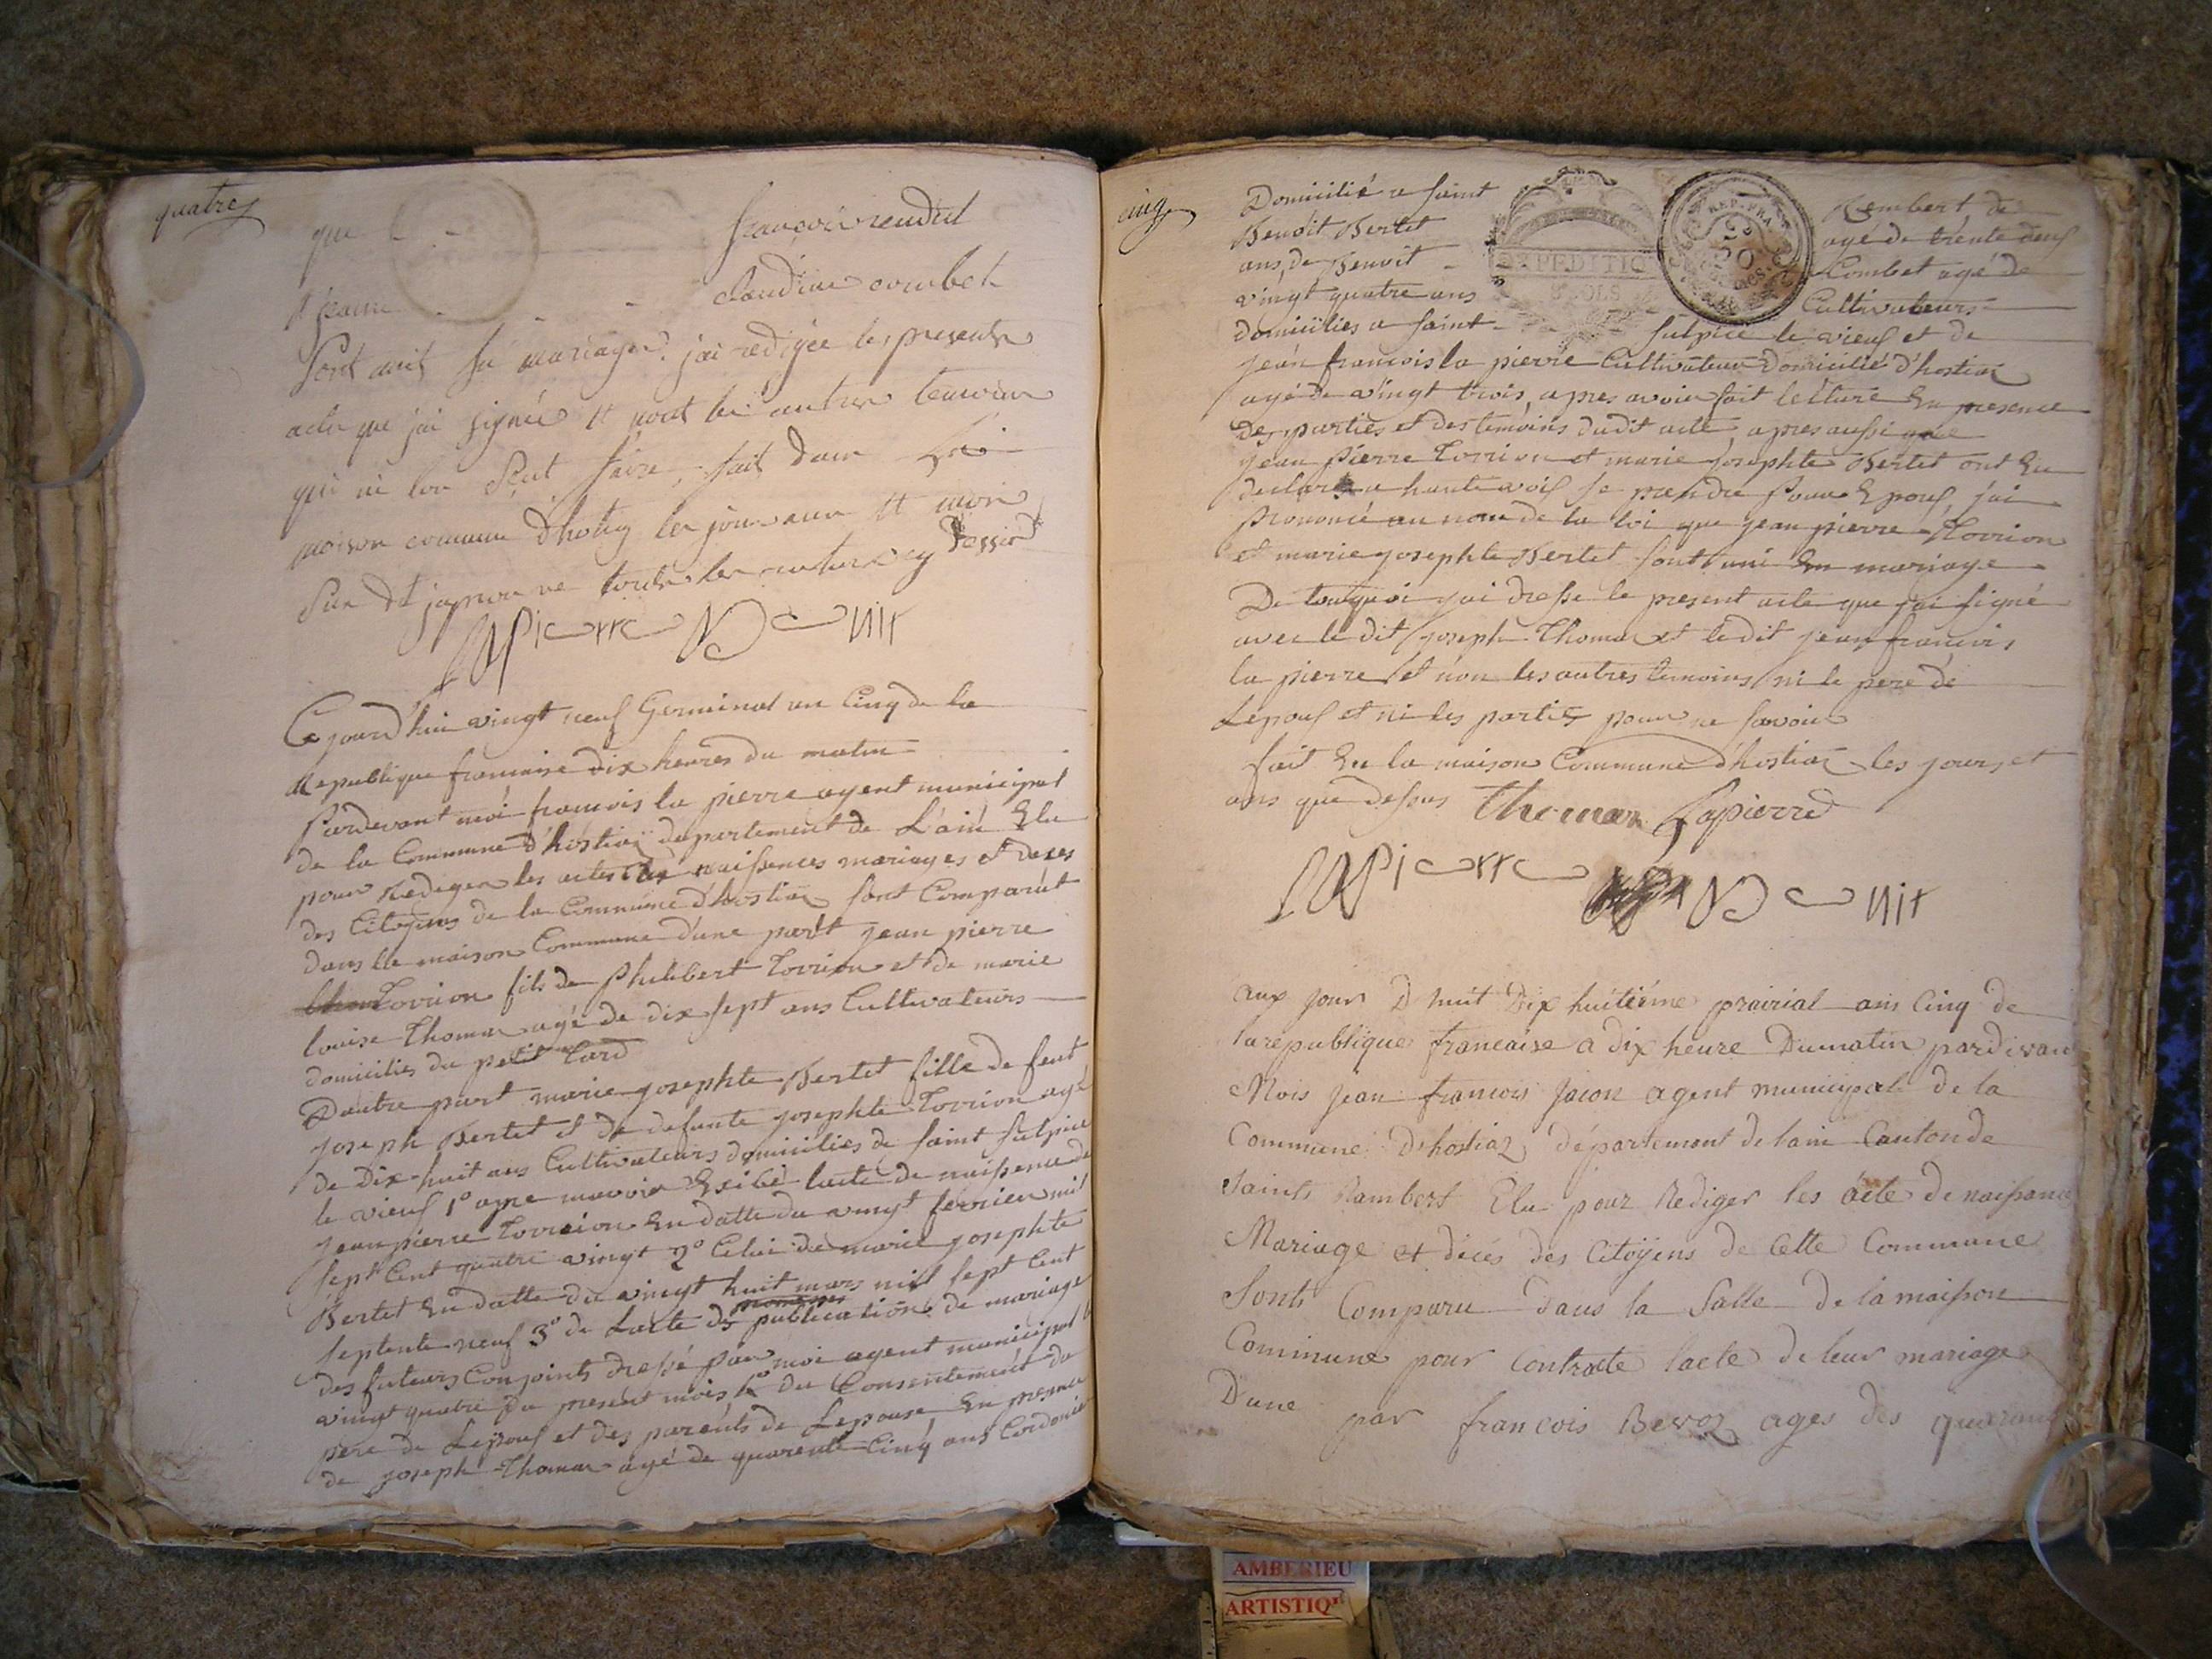 quatre
que françois rendu
et jeanne claudine combet
sont unit en mariage. j'ai redigée les presents
acte que j'ai signée et non les autres temoins
qui ne l'on seut faire, fait dans la
maison commune d'hostiaz les jour ans et mois
que dessus
lapierre agent
Ce jourd'hui vingt neuf Germinal an Cinq de la
Republique francaise dix heures du matin
Pardevant moi francois la pierre agent municipal
de la Commune d'hostiaz departement de L'ain Elu
pour Rediger les actes des naissences mariages et deces
des Citoyens de la Commune d'hostiaz sont Comparut
dans la maison Commune d'une part jean pierre
Torrion fils de Philibert Torrion et de marie
louise Thomas agé de dix sept ans Cultivateurs
domiciliés du petit
D'autre part marie josephte Bertet fille de feut
joseph Bertet et de defunte josephte Torrion agé
de Dix-huit ans Cultivateurs domiciliés de saint sulpice
le vieux 1° apre mavoir Exibé lacte de naissence de
jean pierre Torrion En datte du vingt fevrier mil
sept Cent quatre vingt 2° Celui de marie josephte
Bertet En datte du vingt huit mars mil sept Cent
septente neuf 3° de Lacte de publication de mariage
des futeurs Conjoints dressé par moi agent municipal le
vingt quatre du present mois 4° du Consentement du
pere de Lepoux et des parents de Lepouse En presence
de joseph Thomas agé de quarente Cinq ans Cordonier
cinq
Domicilié a saint Rembert de
Benoit Bertet agé de trente deux
ans, de Benoit Combet agé de
vingt quatre ans Cultivateurs
domiciliés a saint sulpice le vieux et de
EXPEDITIO
SOLS
REP. FRA
jean francois la pierre Cultivateur Domicilié d'hostiaz
agé de vingt trois, apres avoir fait lecture En presence
Des parties et des temoins dudit acte, apres aussi que
jean pierre Torrion et marie josephte Bertet ont Eu
declaré a haute voix se prendre Pour Epoux j'ai
prononcé au nom de la loi que jean pierre Torrion
et marie josephte Bertet sont uni En mariage
De touquoi j'ai dresse le present acte que j'ai signé
avec le dit joseph Thomas et le dit jean francois
la pierre et non les autres temoins ni le pere de
Lepoux et ni les parties pour ne savoir
fait En la maison Commune d'hostiaz les jours et
ans que dessus Thomas Lapierre
lapierre agent
aux jour D huit Dix huitiéme prairial ans Cinq de
la republique francaise a dix heure Du matin pardevan
Mois jean francois jacon agent municipal de la
Commune D'hostiaz département de lain Canton de
Saints Rambert Elu pour Rediger les acte de naissance
Mariage et déces des Citoÿens de Cette Commune
Sonts Comparu Dans la Salle de la maisson
Commune pour contracte lacte de leur mariage
D'une par francois Bevoz ages des quarante
AMBERIEU
ARTISTIQ